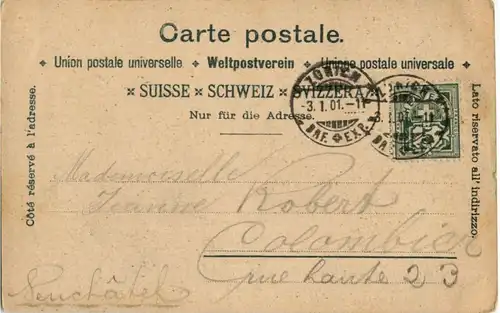 Carte postale.
✦ Union postale universelle. ✦ Weltpostverein ✦ Unione postale universale ✦
× SUISSE × SCHWEIZ × SVIZZERA ×
Nur für die Adresse.
Côté réservé à l'adresse.
Lato riservato all' indirizzo.
ZÜRICH
-3.1.01.-11
BRF. EXP.
ZÜRICH
Mademoiselle
Jeanne Robert
Colombier
rue haute 23
Neuchâtel